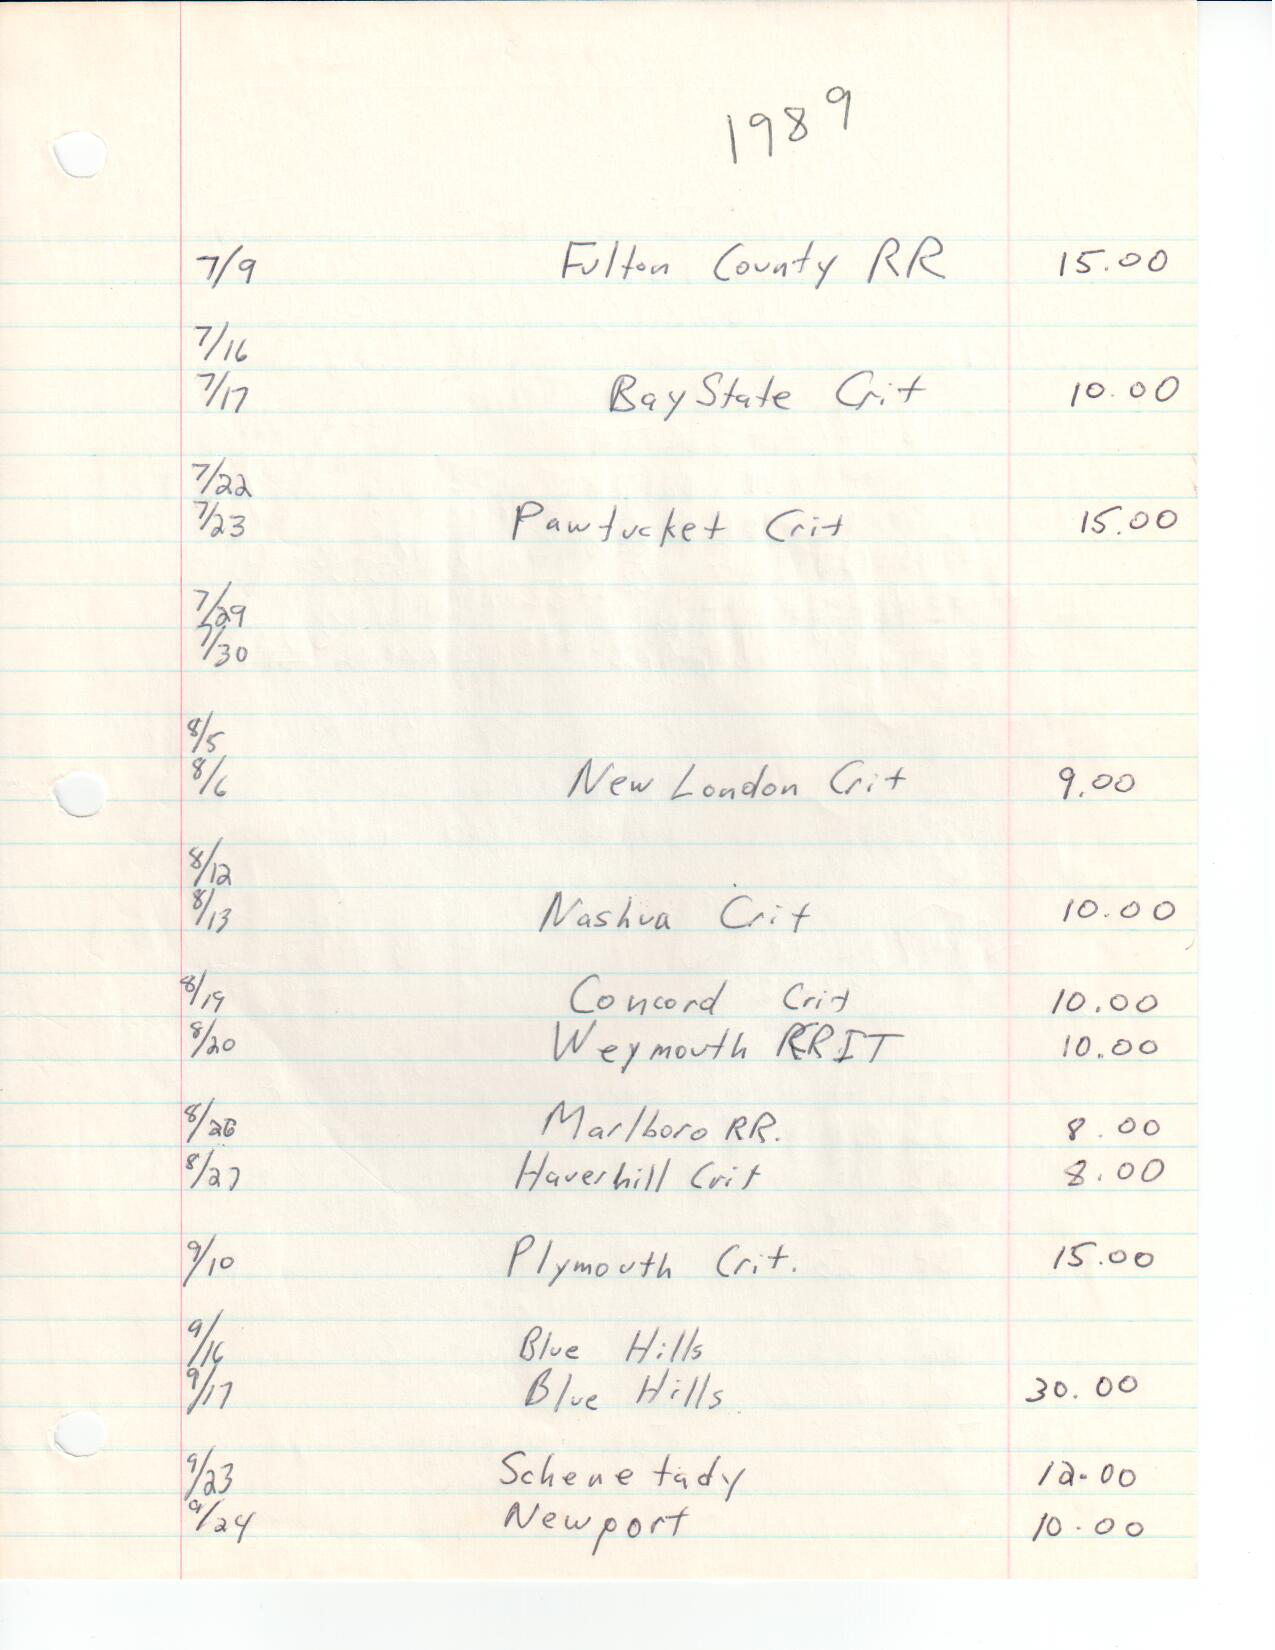 1989
7/9 Fulton County RR 15.00
7/16
7/17 Bay State Crit 10.00
7/22
7/23 Pawtucket Crit 15.00
7/29
7/30
8/5
8/6 New London Crit 9.00
8/12
8/13 Nashua Crit 10.00
8/19 Concord Crit 10.00
8/20 Weymouth RRIT 10.00
8/26 Marlboro RR. 8.00
8/27 Haverhill Crit 8.00
9/10 Plymouth Crit. 15.00
9/16 Blue Hills
9/17 Blue Hills 30.00
9/23 Schenetady 12.00
9/24 Newport 10.00